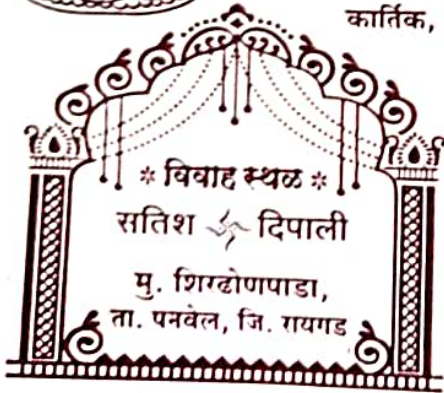 कार्तिक,
* विवाह स्थळ *
सतिश 卐 दिपाली
मु. शिरढोणपाडा,
ता. पनवेल, जि. रायगड